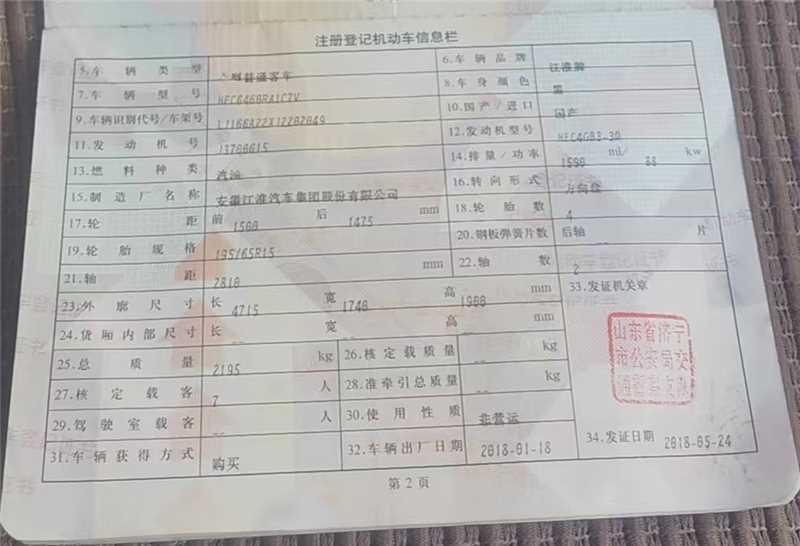 注册登记机动车信息栏
5.车辆类型 小型普通客车 6.车辆品牌 江淮牌
7.车辆型号 HFC6460RA1C7V 8.车身颜色 黑
9.车辆识别代号/车架号 10.国产/进口 国产
11.发动机号 J3700615 12.发动机型号 HFC4GB3-3D
13.燃料种类 汽油 14.排量/功率 1590 ml/ 88 kw
15.制造厂名称 安徽江淮汽车集团股份有限公司 16.转向形式 方向盘
17.轮距 前 1500 后 1475 mm 18.轮胎数 4
19.轮胎规格 195/65R15 20.钢板弹簧片数 后轴 -- 片
21.轴距 2810 mm 22.轴数 2
23.外廓尺寸 长 4715 宽 1740 高 1900 mm 33.发证机关章
24.货厢内部尺寸 长 -- 宽 -- 高 -- mm
25.总质量 2195 kg 26.核定载质量 -- kg
27.核定载客 7 人 28.准牵引总质量 -- kg
29.驾驶室载客 -- 人 30.使用性质 非营运
31.车辆获得方式 购买 32.车辆出厂日期 2018-01-18 34.发证日期 2018-05-24
山东省济宁
市公安局交
通警察支队
第2页